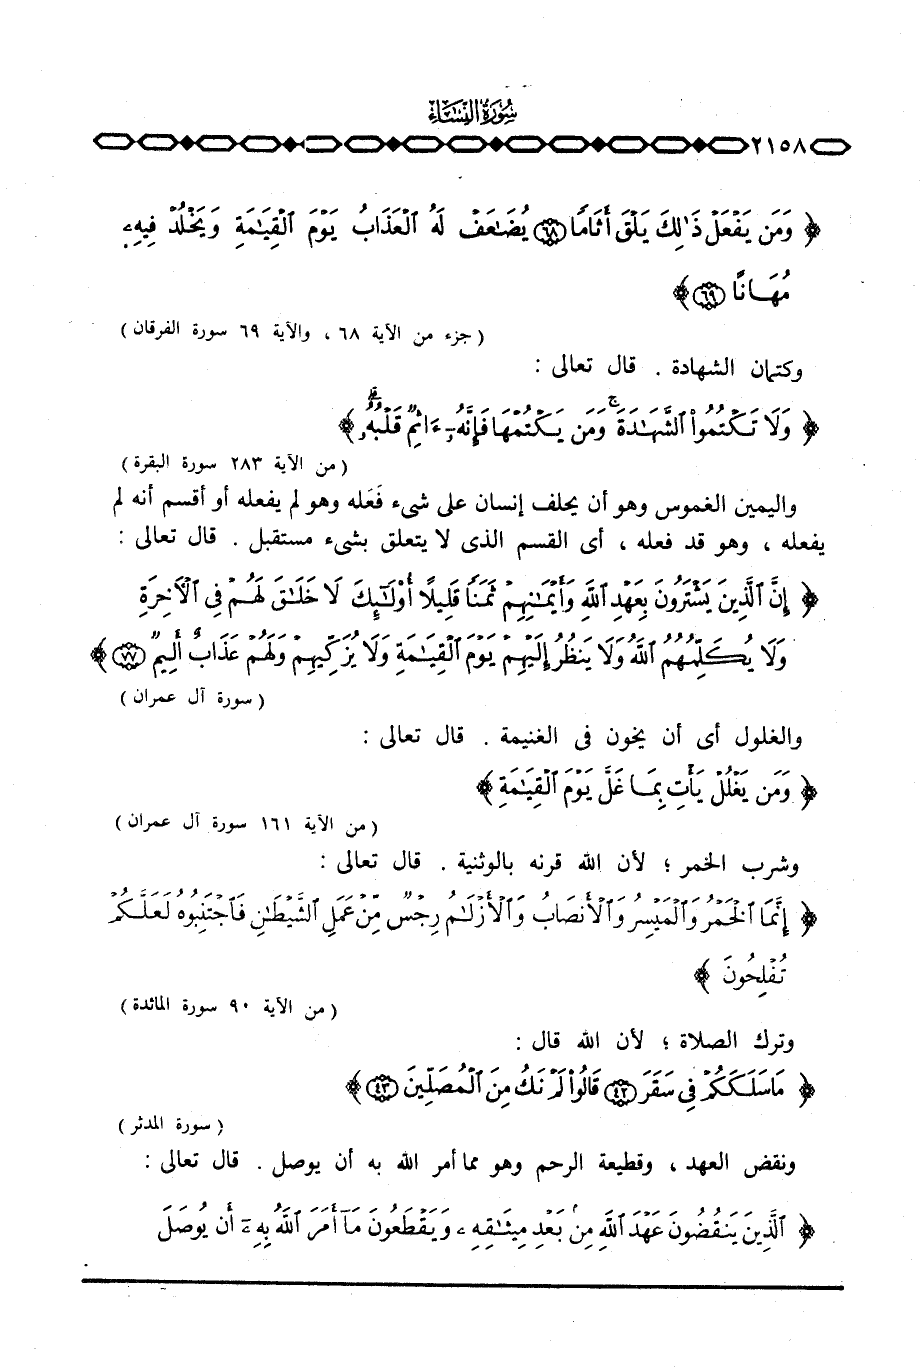 سُورَةُ النِّسَاءِ
٢١٥٨
﴿ وَمَن يَفْعَلْ ذَٰلِكَ يَلْقَ أَثَامًا ٦٨ يُضَٰعَفْ لَهُ ٱلْعَذَابُ يَوْمَ ٱلْقِيَٰمَةِ وَيَخْلُدْ فِيهِۦ
مُهَانًا ٦٩ ﴾
( جزء من الآية ٦٨ ، والآية ٦٩ سورة الفرقان )
وكتمان الشهادة . قال تعالى :
﴿ وَلَا تَكْتُمُوا۟ ٱلشَّهَٰدَةَ ۚ وَمَن يَكْتُمْهَا فَإِنَّهُۥٓ ءَاثِمٌ قَلْبُهُۥ ۗ ﴾
( من الآية ٢٨٣ سورة البقرة )
واليمين الغموس وهو أن يحلف إنسان على شىء فَعَله وهو لم يفعله أو أقسم أنه لم
يفعله ، وهو قد فعله ، أى القسم الذى لا يتعلق بشىء مستقبل . قال تعالى :
﴿ إِنَّ ٱلَّذِينَ يَشْتَرُونَ بِعَهْدِ ٱللَّهِ وَأَيْمَٰنِهِمْ ثَمَنًا قَلِيلًا أُو۟لَٰٓئِكَ لَا خَلَٰقَ لَهُمْ فِى ٱلْأَخِرَةِ
وَلَا يُكَلِّمُهُمُ ٱللَّهُ وَلَا يَنظُرُ إِلَيْهِمْ يَوْمَ ٱلْقِيَٰمَةِ وَلَا يُزَكِّيهِمْ وَلَهُمْ عَذَابٌ أَلِيمٌ ٧٧ ﴾
( سورة آل عمران )
والغلول أى أن يخون فى الغنيمة . قال تعالى :
﴿ وَمَن يَغْلُلْ يَأْتِ بِمَا غَلَّ يَوْمَ ٱلْقِيَٰمَةِ ﴾
( من الآية ١٦١ سورة آل عمران )
وشرب الخمر ؛ لأن الله قرنه بالوثنية . قال تعالى :
﴿ إِنَّمَا ٱلْخَمْرُ وَٱلْمَيْسِرُ وَٱلْأَنصَابُ وَٱلْأَزْلَٰمُ رِجْسٌ مِّنْ عَمَلِ ٱلشَّيْطَٰنِ فَٱجْتَنِبُوهُ لَعَلَّكُمْ
تُفْلِحُونَ ﴾
( من الآية ٩٠ سورة المائدة )
وترك الصلاة ؛ لأن الله قال :
﴿ مَا سَلَكَكُمْ فِى سَقَرَ ٤٢ قَالُوا۟ لَمْ نَكُ مِنَ ٱلْمُصَلِّينَ ٤٣ ﴾
( سورة المدثر )
ونقض العهد ، وقطيعة الرحم وهو مما أمر الله به أن يوصل . قال تعالى :
﴿ ٱلَّذِينَ يَنقُضُونَ عَهْدَ ٱللَّهِ مِنۢ بَعْدِ مِيثَٰقِهِۦ وَيَقْطَعُونَ مَآ أَمَرَ ٱللَّهُ بِهِۦٓ أَن يُوصَلَ